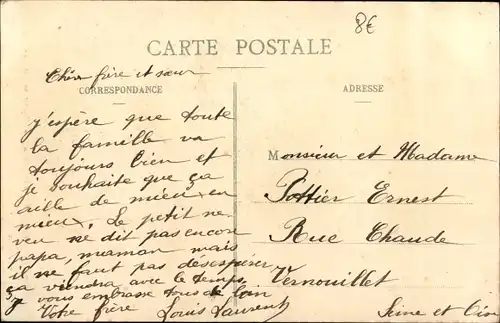 8€
CARTE POSTALE
Chers frère et sœur
CORRESPONDANCE
j'espère que toute
la famille va
toujours bien et
je souhaite que ça
aille de mieux en
mieux. Le petit ne-
veu ne dit pas encore
papa, maman mais
il ne faut pas désespérer
ça viendra avec le temps
Je vous embrasse tous de loin
Votre frère Louis Laurent
ADRESSE
Monsieur et Madame
Pottier Ernest
Rue Chaude
Vernouillet
Seine et Oise